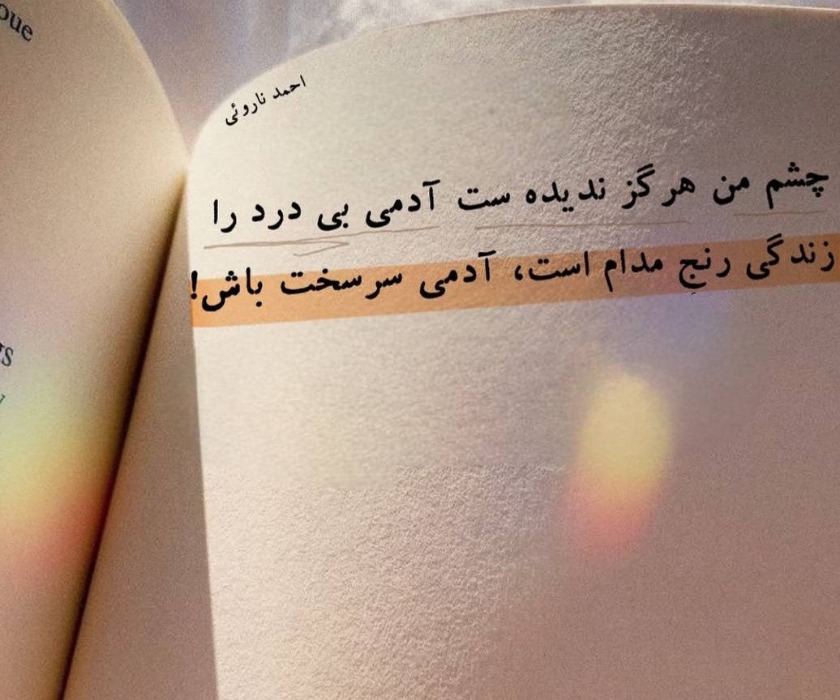 احمد ناروئی
چشم من هرگز ندیده ست آدمی بی درد را
زندگی رنجِ مدام است، آدمی سرسخت باش!